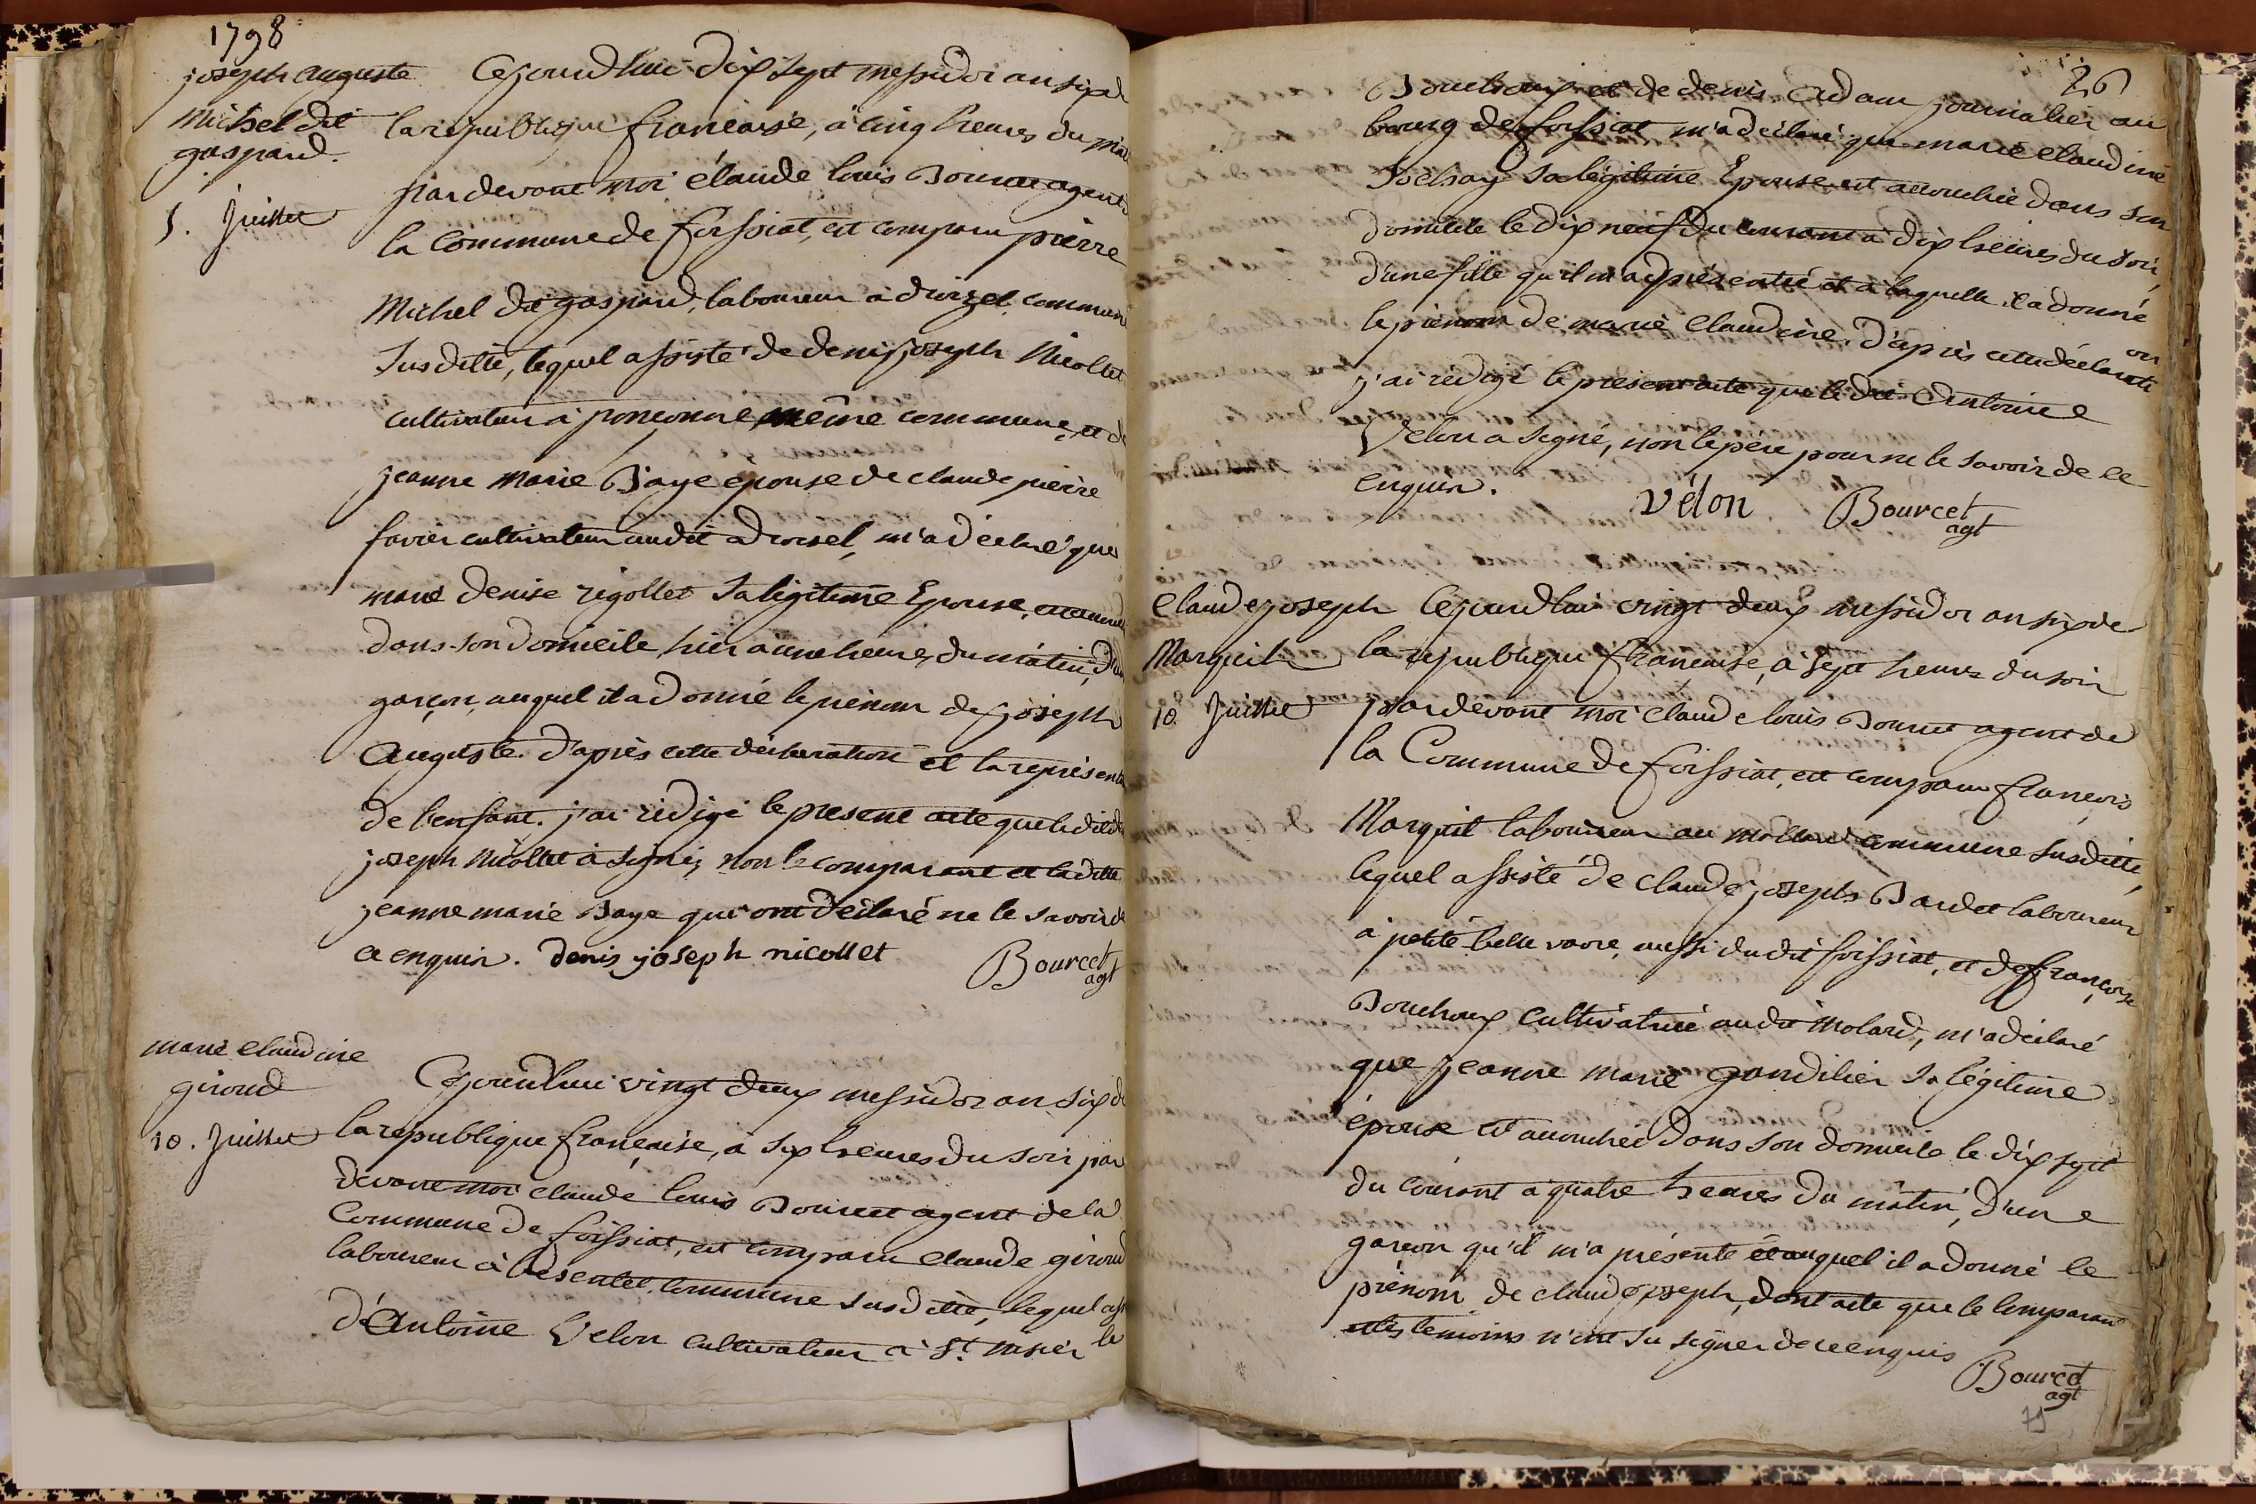 1798
joseph auguste
Michel dit
gaspard.
5. Juillet
Cejourdhui dix sept messidor an six d
la république francaise, à cinq heures du mat
pardevant moi claude louis Bourcet agent d
la Commune de foissiat, est comparu pierre
Michel dit gaspard, laboureur à commun
susditte, lequel assisté de denis joseph Nicollet
cultivateur à ponconne même commune, et d
jeanne marie Baye epouse de claude pierre
favier cultivateur audit m'a déclaré que
marie denise rigollet sa légitime Epouse,
dans son domicile, hier à une heure, du mâtin, d'un
garçon, auquel il a donné le prénom de joseph
Auguste. D'après cette déclaration et la représent
de l'enfant. j'ai rédigé le present acte que ledit d
joseph Nicollet à signé, non le comparant et laditte
jeanne marie Baye qui ont déclaré ne le savoir de
ce enquis. denis joseph nicollet
Bourcet
agt
marie claudine
giroud
10. Juillet
Cejourdhui vingt deux messidor an six d
la republique francaise, à six heures du soir par
devant moi claude louis Bourcet agent de la
Commune de foissiat, est comparu claude giroud
laboureur à commune susditte, lequel ass
d'Antoine Velon cultivateur à St. la
26
Bouchoux et de denis Cudaur journalier au
bourg de foissiat m'a déclaré que marie claudine
sa légitime Epouse est accouchée dans son
domicile le dix neuf du courant à dix heures du soir,
d'une fille qu'il m'a présentée et à laquelle il a donné
le prénom de marie claudine. D'après cette déclarati
on
j'ai rédigé le present acte que ledit Antoine
Velon a signé, non le pere pour ne le savoir de ce
enquis.
vélon
Bourcet
agt
Claude joseph
Marquit
10 Juillet
Cejourdhui vingt deux messidor an six de
la république francaise, à sept heures du soir
pardevant moi claude louis Bourcet agent de
la Commune de foissiat, est comparu françois
Marquit laboureur au mollard commune susditte,
lequel assisté de claude joseph Bardet laboureur
à petite belle vavre, aussi dudit foissiat, et de françoise
Bouchoux cultivatrice audit Molard, m'a déclaré
que jeanne marie gandilier sa légitime
épouse est accouchée dans son domicile le dix sept
du courant à quatre heures du mâtin, d'un
garcon qu'il m'a présenté et auquel il a donné le
prénom de claude joseph, dont acte que le comparant
et les temoins n'ont su signer de ce enquis
Bourcet
agt